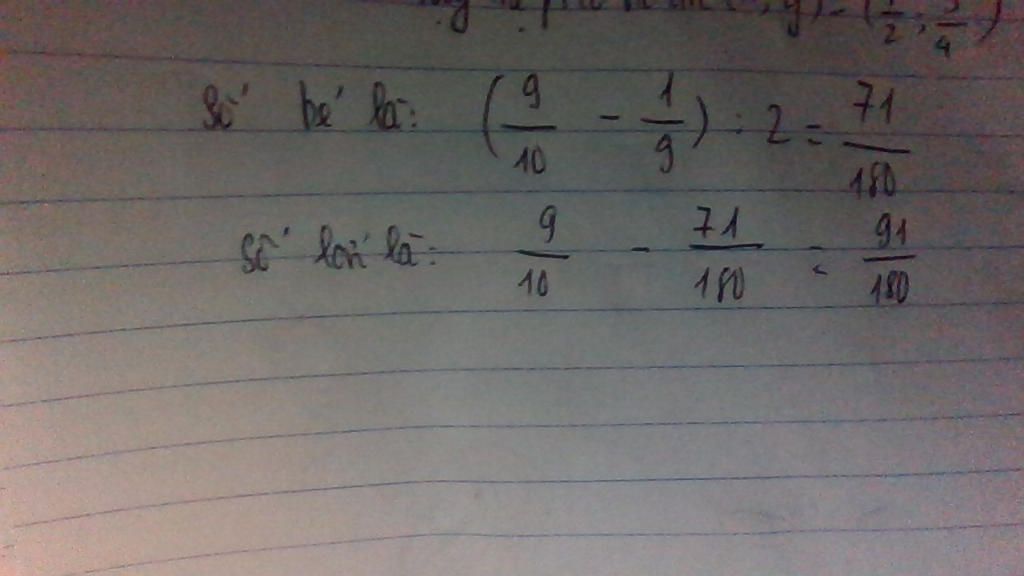 Số bé là: (9/10 - 1/9) : 2 = 71/180
Số lớn là: 9/10 - 71/180 = 91/180